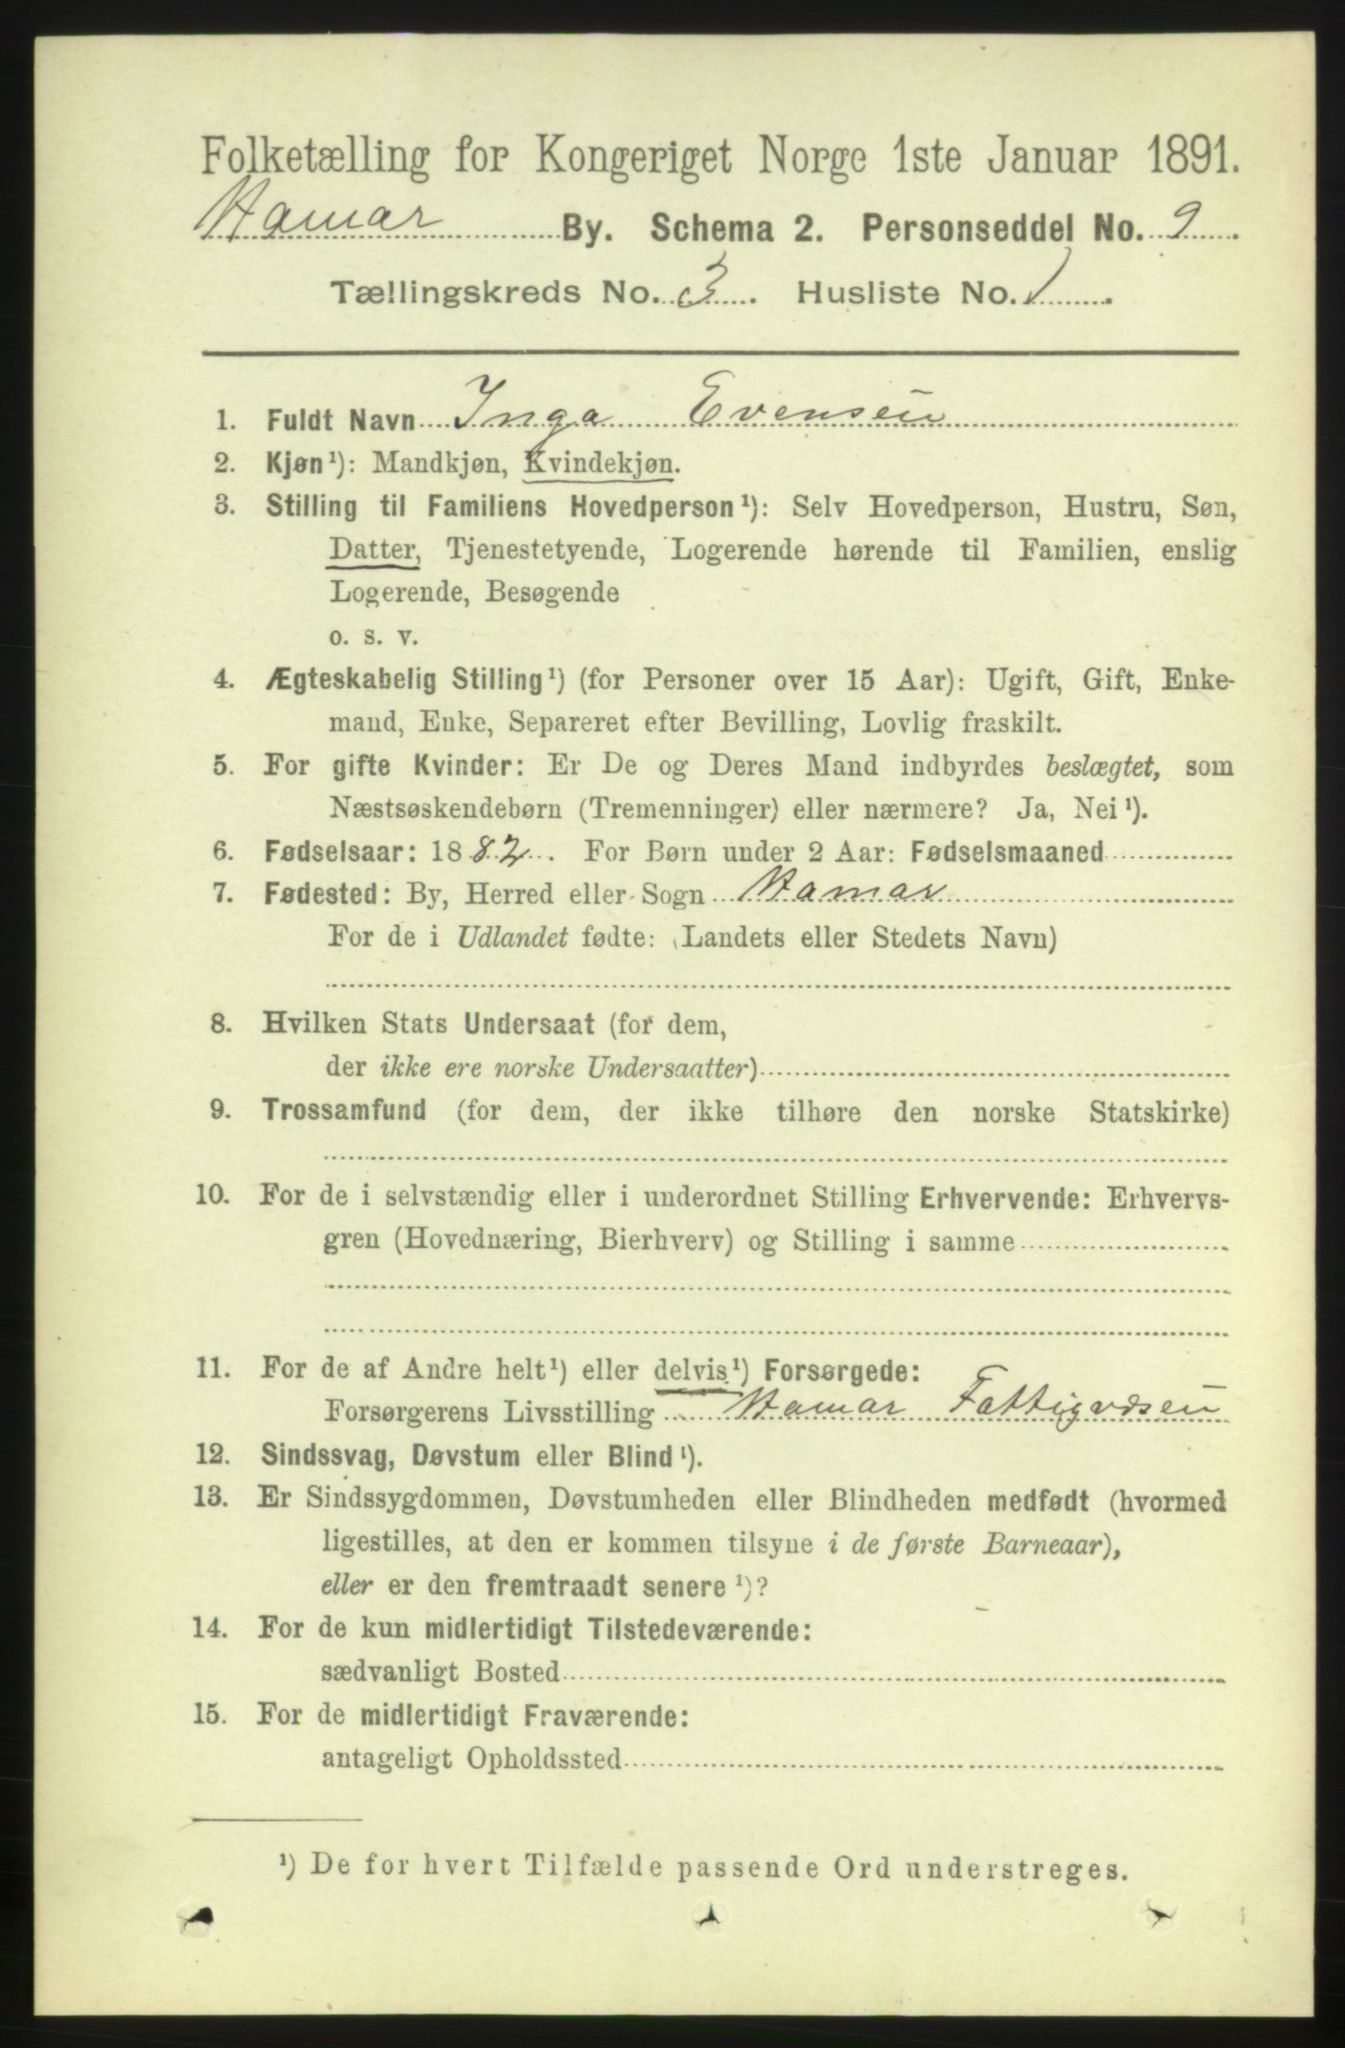 Folketælling for Kongeriget Norge 1ste Januar 1891.
Hamar By. Schema 2. Personseddel No. 9.
Tællingskreds No. 3. Husliste No. 1.
1. Fuldt Navn Inga Evensen
2. Kjøn¹): Mandkjøn, Kvindekjøn.
3. Stilling til Familiens Hovedperson¹): Selv Hovedperson, Hustru, Søn,
Datter, Tjenestetyende, Logerende hørende til Familien, enslig
Logerende, Besøgende
o. s. v.
4. Ægteskabelig Stilling¹) (for Personer over 15 Aar): Ugift, Gift, Enke-
mand, Enke, Separeret efter Bevilling, Lovlig fraskilt.
5. For gifte Kvinder: Er De og Deres Mand indbyrdes beslægtet, som
Næstsøskendebørn (Tremenninger) eller nærmere? Ja, Nei¹).
6. Fødselsaar: 1882. For Børn under 2 Aar: Fødselsmaaned
7. Fødested: By, Herred eller Sogn Hamar
For de i Udlandet fødte: (Landets eller Stedets Navn)
8. Hvilken Stats Undersaat (for dem,
der ikke ere norske Undersaatter)
9. Trossamfund (for dem, der ikke tilhøre den norske Statskirke)
10. For de i selvstændig eller i underordnet Stilling Erhvervende: Erhvervs-
gren (Hovednæring, Bierhverv) og Stilling i samme
11. For de af Andre helt¹) eller delvis¹) Forsørgede:
Forsørgerens Livsstilling Hamar Fattigvæsen
12. Sindssvag, Døvstum eller Blind¹).
13. Er Sindssygdommen, Døvstumheden eller Blindheden medfødt (hvormed
ligestilles, at den er kommen tilsyne i de første Barneaar),
eller er den fremtraadt senere¹)?
14. For de kun midlertidigt Tilstedeværende:
sædvanligt Bosted
15. For de midlertidigt Fraværende:
antageligt Opholdssted
¹) De for hvert Tilfælde passende Ord understreges.